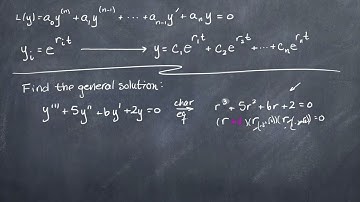 L(y) = a₀y⁽ⁿ⁾ + a₁y⁽ⁿ⁻¹⁾ + ⋯ + aₙ₋₁y' + aₙy = 0
yᵢ = e^{rᵢt} ⟶ y = c₁e^{r₁t} + c₂e^{r₂t} + ⋯ + cₙe^{rₙt}
Find the general solution:
y''' + 5y'' + 6y' + 2y = 0 char eq r³ + 5r² + 6r + 2 = 0